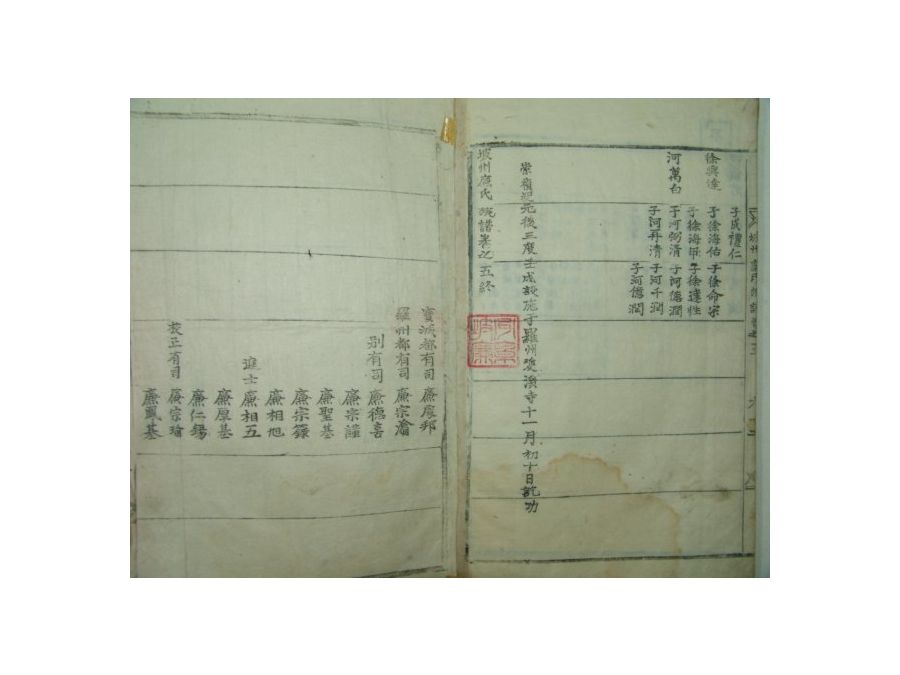 徐興達
河萬白
子成禮仁
子徐海佑 子徐命宗
子徐海 子徐達性
子河弼清 子河德潤
子河再清 子河千潤
子河德潤
崇禎紀元後三度壬戌設施于羅州雙溪寺十一月初十日訖功
坡州廉氏族譜卷之五終
寶派都有司 廉慶邦
羅州都有司 廉宗瀹
別有司 廉德喜
廉宗謹
廉聖基
廉宗籙
廉相旭
進士 廉相五
廉厚基
廉仁錫
校正有司 廉宗瑜
廉鳳基